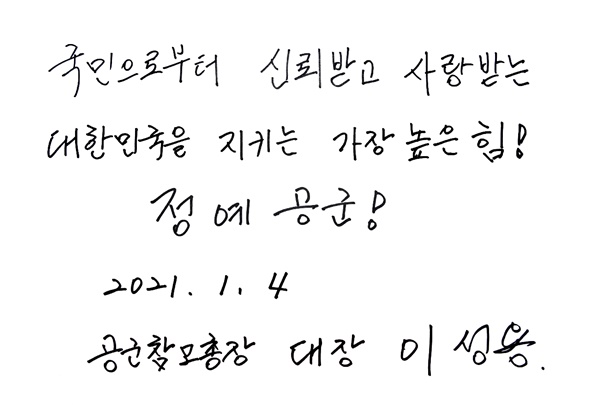 국민으로부터 신뢰받고 사랑받는
대한민국을 지키는 가장 높은 힘!
정예 공군!
2021. 1. 4
공군참모총장 대장 이성용.